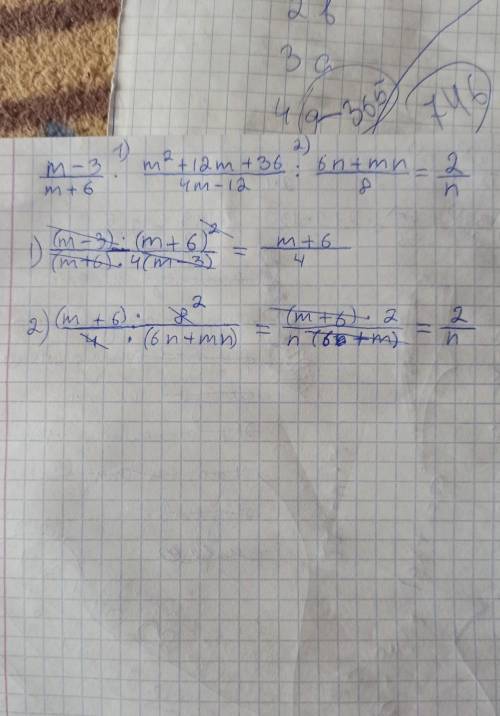 2 b
3 a
4 a - 365 746
1) 2)
(m-3)/(m+6) · (m²+12m+36)/(4m-12) : (6n+mn)/8 = 2/n
1) ((m-3)·(m+6)²)/((m+6)·4(m-3)) = (m+6)/4
2) ((m+6)·8 2)/(4·(6n+mn)) = ((m+6)·2)/(n(6+m)) = 2/n